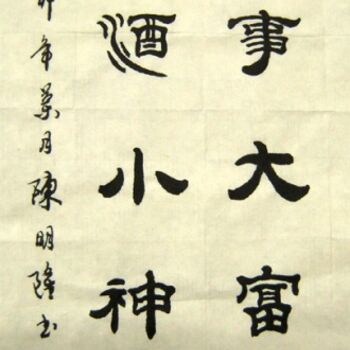 事大富
酒小神
年 月陳明隆书